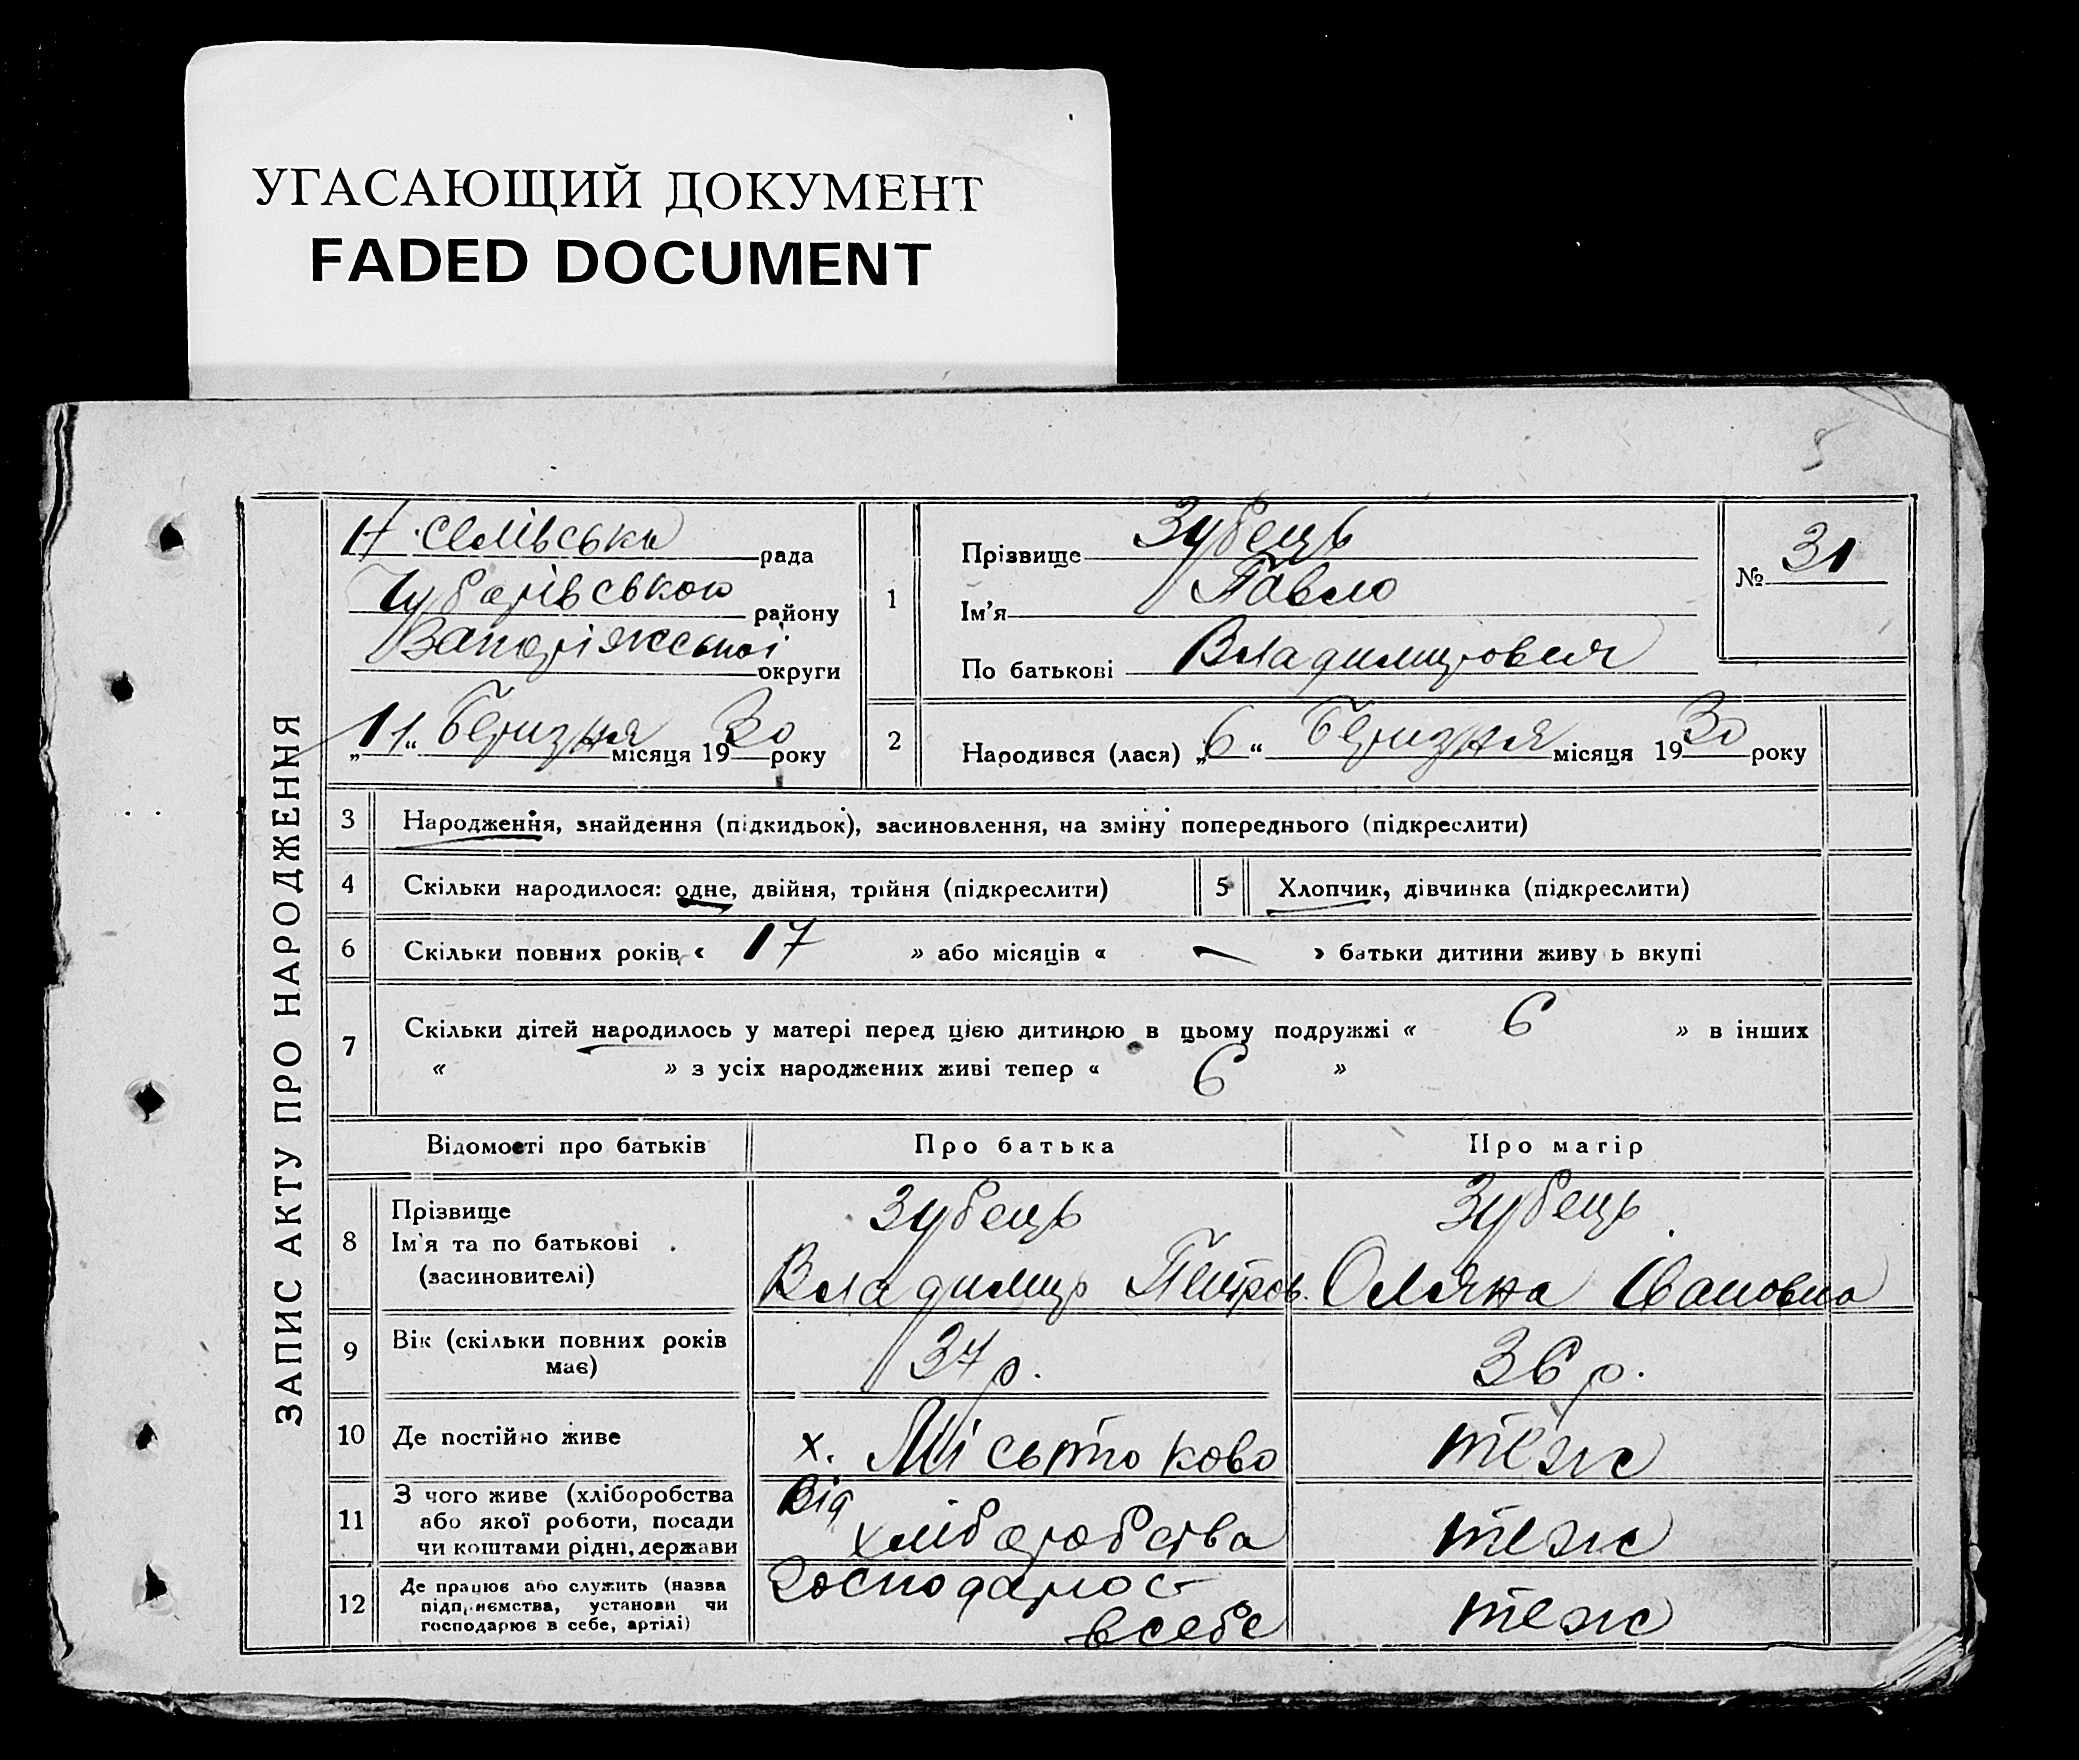 УГАСАЮЩИЙ ДОКУМЕНТ
FADED DOCUMENT
5
ЗАПИС АКТУ ПРО НАРОДЖЕННЯ
Н. селівська рада
Чубарівською району
Запоріжської округи
„11“ Березня місяця 1930 року
1
Прізвище Зубець
Ім'я Павло
По батькові Владимирович
№ 31
2
Народився (лася) „6“ Березня місяця 1930 року
3 Народження, знайдення (підкидьок), засиновлення, на зміну попереднього (підкреслити)
4 Скільки народилося: одне, двійня, трійня (підкреслити) 5 Хлопчик, дівчинка (підкреслити)
6 Скільки повних років « 17 » або місяців « — » батьки дитини живу ь вкупі
7 Скільки дітей народилось у матері перед цією дитиною в цьому подружжі « 6 » в інших
« » з усіх народжених живі тепер « 6 »
Відомості про батьків Про батька Про матір
8 Прізвище Зубець Зубець
Ім'я та по батькові Владимир Петров. Оляна Івановна
(засиновителі)
9 Вік (скільки повних років має) 37 р. 36 р.
10 Де постійно живе х. Місьтоково теж
11 З чого живе (хліборобства Від
або якої роботи, посади хліборобства теж
чи коштами рідні, держави
12 Де працює або служить (назва Господарює
підприємства, установи чи в себе теж
господарює в себе, артілі)